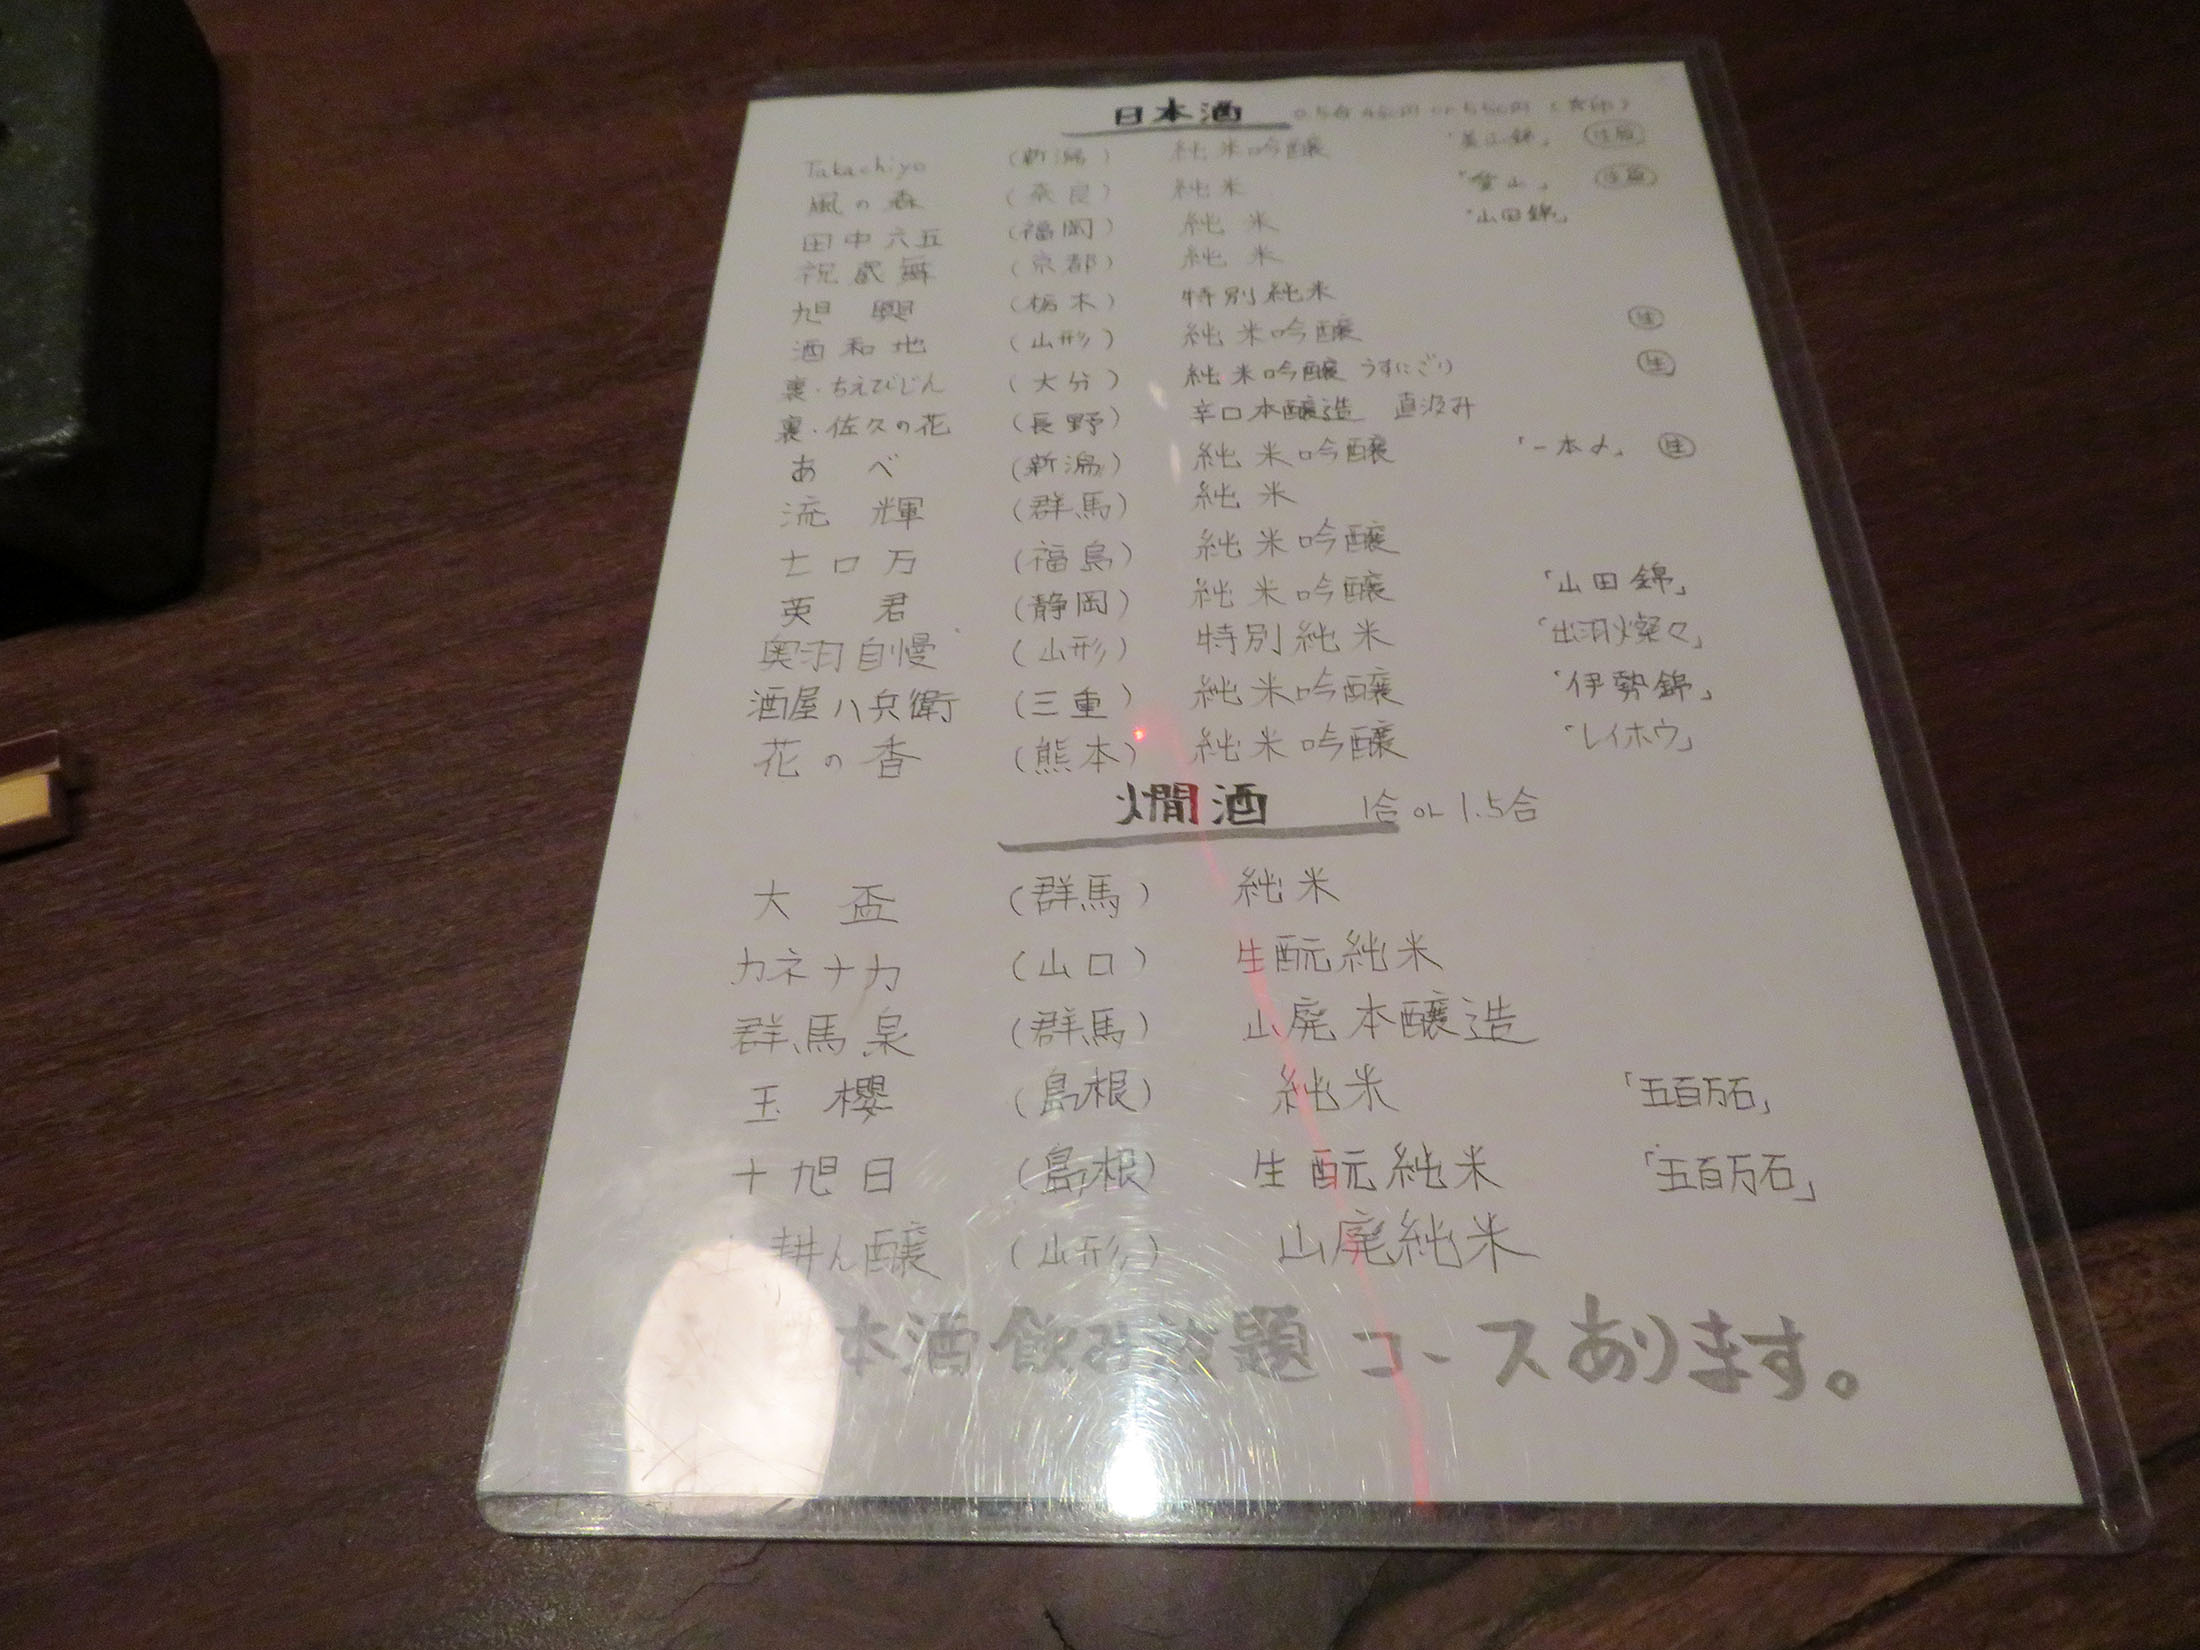 日本酒
Takachiyo (新潟) 純米吟醸 「美山錦」
風の森 (奈良) 純米
田中六五 (福岡) 純米 「山田錦」
祝蔵舞 (京都) 純米
旭興 (栃木) 特別純米
酒和地 (山形) 純米吟醸 生
裏・ちえびじん (大分) 純米吟醸 うすにごり 生
裏・佐久の花 (長野) 辛口本醸造 直汲み
あべ (新潟) 純米吟醸 「一本〆」 生
流輝 (群馬) 純米
七ロ万 (福島) 純米吟醸
英君 (静岡) 純米吟醸 「山田錦」
奥羽自慢 (山形) 特別純米 「出羽燦々」
酒屋八兵衛 (三重) 純米吟醸 「伊勢錦」
花の香 (熊本) 純米吟醸 「レイホウ」
燗酒 1合 or 1.5合
大盃 (群馬) 純米
カネナカ (山口) 生酛純米
群馬泉 (群馬) 山廃本醸造
玉櫻 (島根) 純米 「五百万石」
十旭日 (島根) 生酛純米 「五百万石」
耕ん醸 (山形) 山廃純米
日本酒飲み放題コースあります。